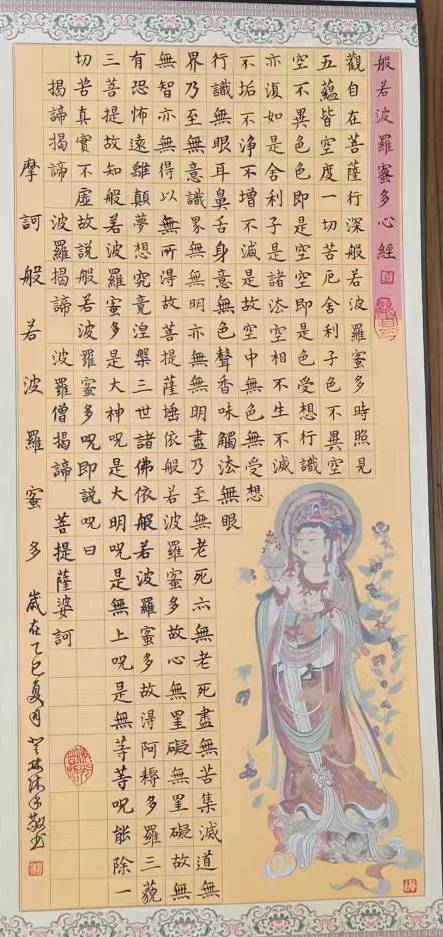 般若波羅蜜多心經
觀自在菩薩行深般若波羅蜜多時照見
五蘊皆空度一切苦厄舍利子色不異空
空不異色色即是空空即是色受想行識
亦復如是舍利子是諸法空相不生不滅
不垢不淨不增不減是故空中無色無受想
行識無眼耳鼻舌身意無色聲香味觸法無眼
界乃至無意識界無無明亦無無明盡乃至無老死亦無老死盡無苦集滅道無
無智亦無得以無所得故菩提薩埵依般若波羅蜜多故心無罣礙無罣礙故無
有恐怖遠離顛夢想究竟湼槃三世諸佛依般若波羅蜜多故得阿耨多羅三藐
三菩提故知般若波羅蜜多是大神呪是大明呪是無上呪是無等等呪能除一
切苦真實不虛故説般若波羅蜜多呪即説呪曰
揭諦揭諦 波羅揭諦 波羅僧揭諦 菩提薩婆訶
摩訶般若波羅蜜多 歲在乙巳夏月 敬書